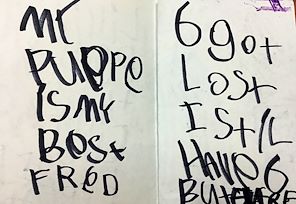 MY
PUPPE
IS MY
BEST
FRED
6 got
LOST
I STIL
HAVE 6
BUT